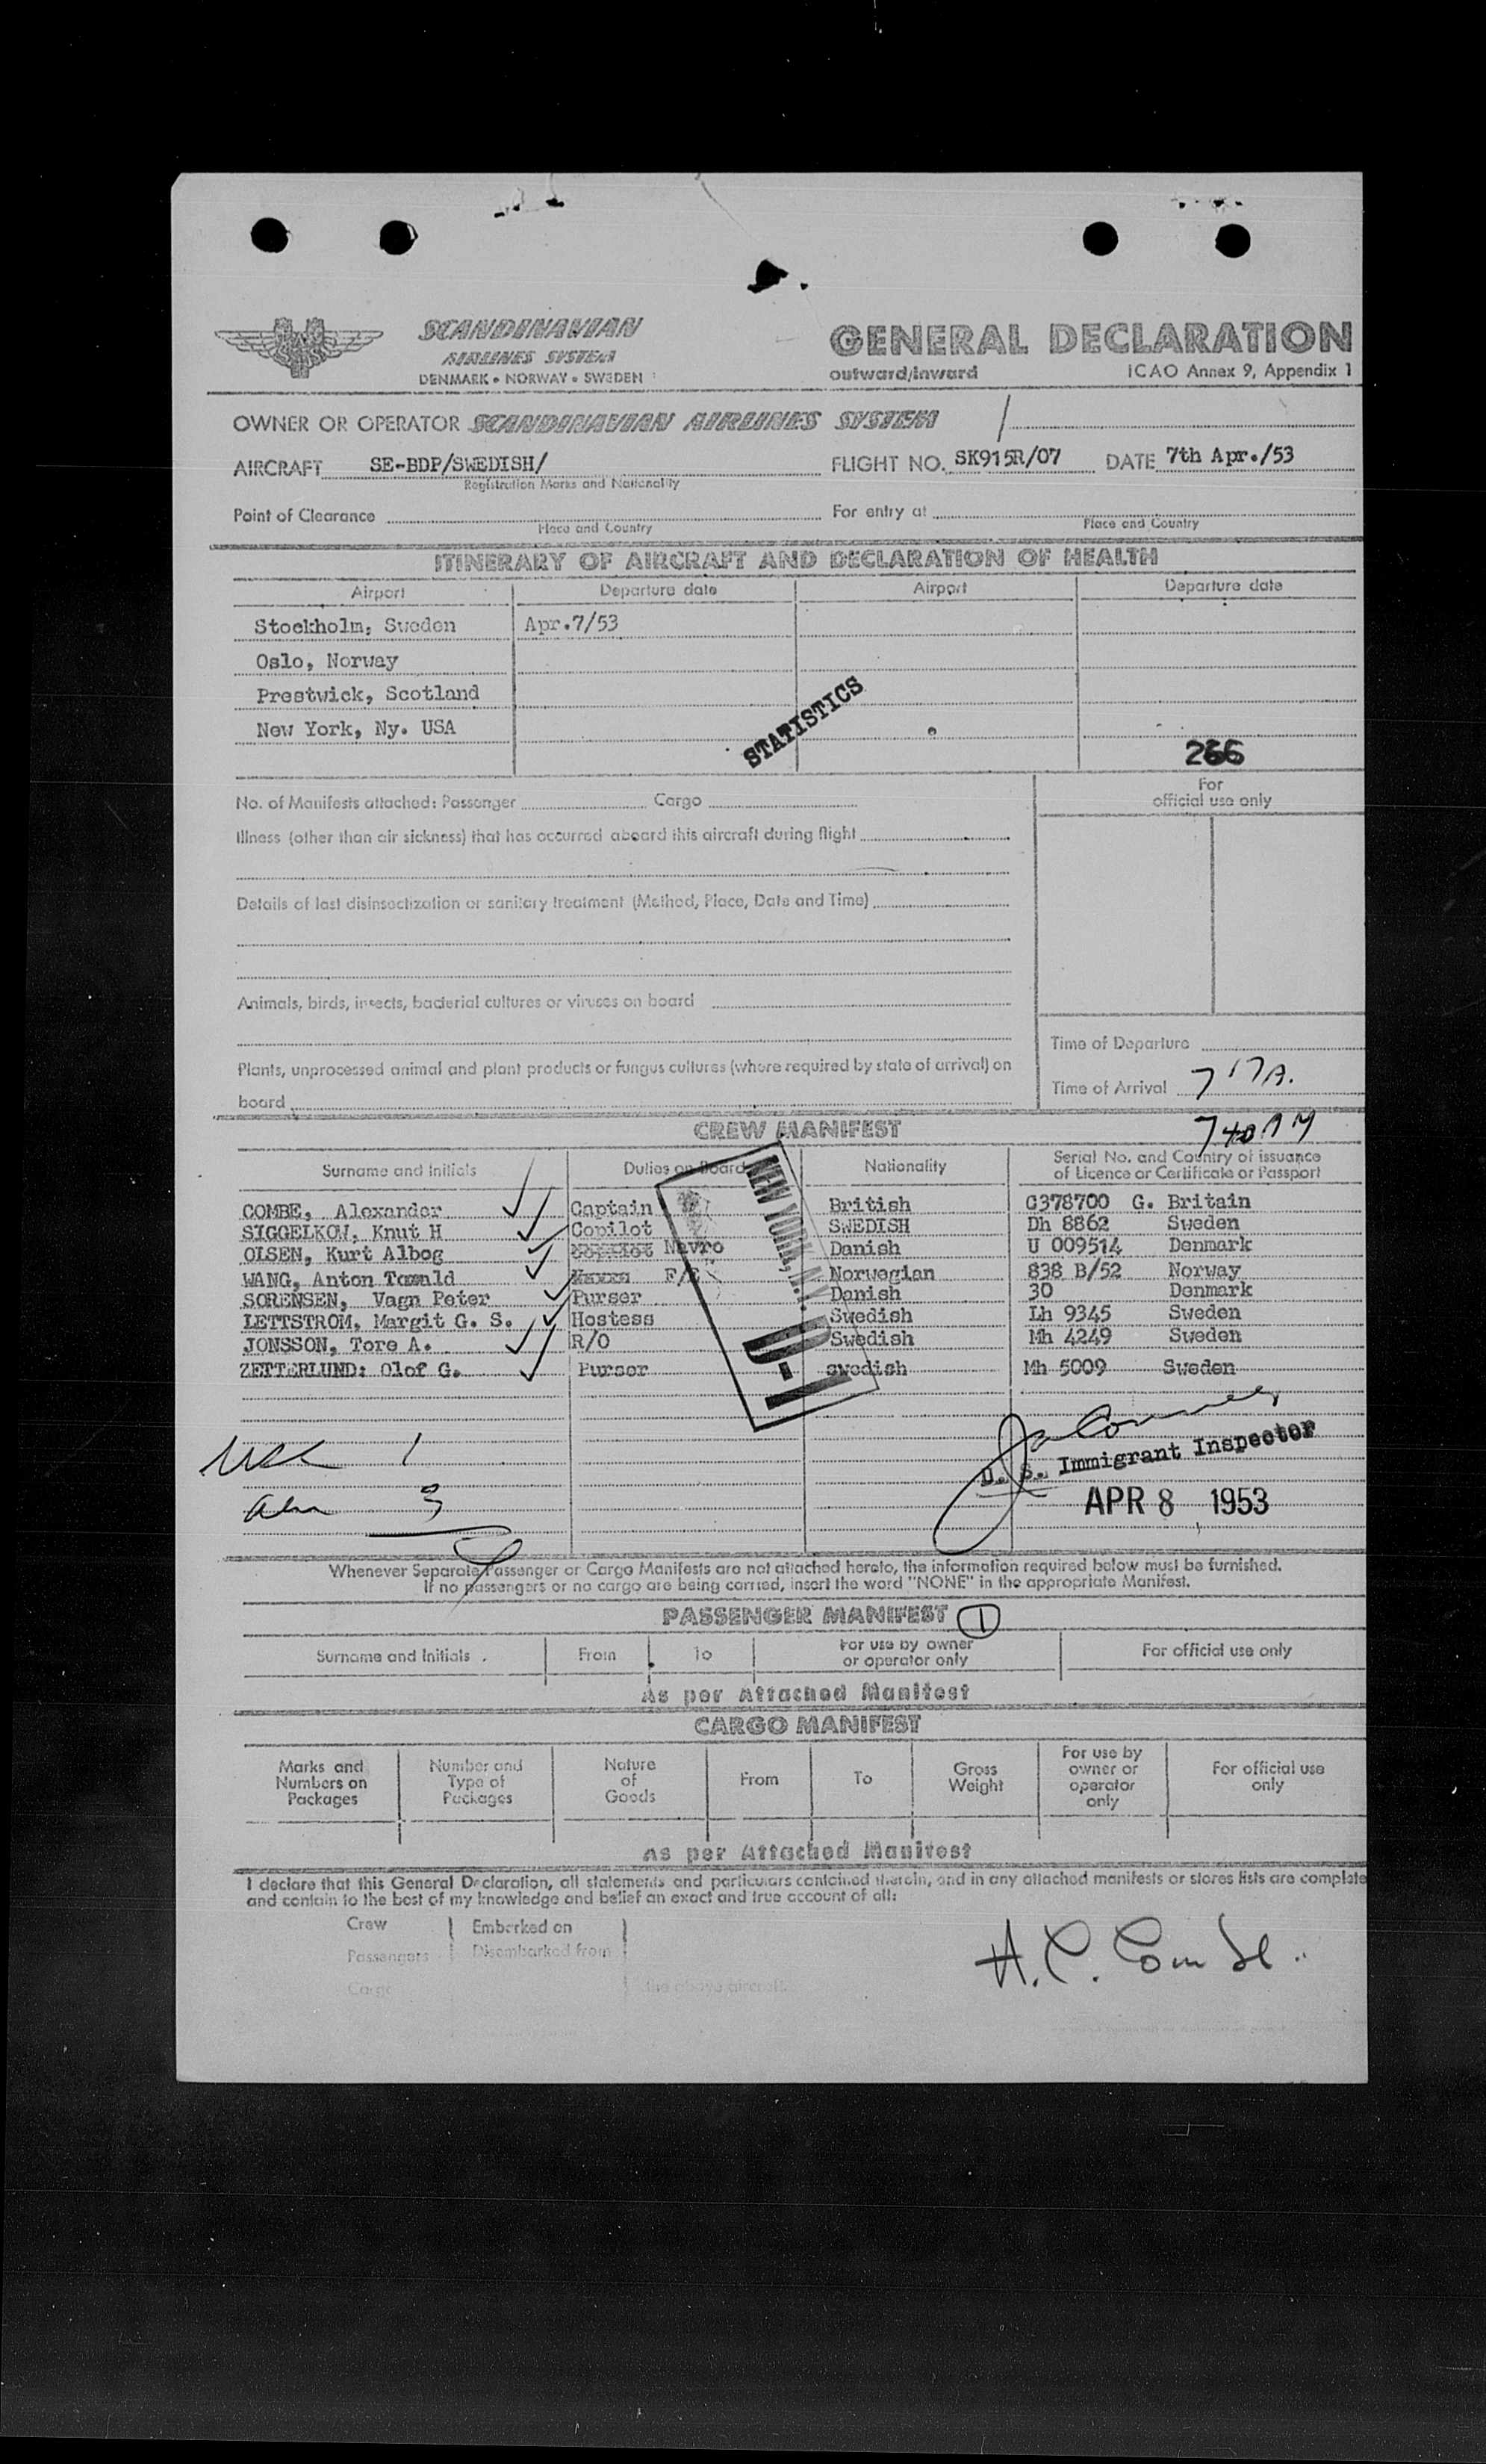 SCANDINAVIAN
AIRLINES SYSTEM
DENMARK • NORWAY • SWEDEN
GENERAL DECLARATION
outward/inward ICAO Annex 9, Appendix 1
OWNER OR OPERATOR SCANDINAVIAN AIRLINES SYSTEM
AIRCRAFT SE-BDP/SWEDISH/ FLIGHT NO. SK915R/07 DATE 7th Apr./53
Registration Marks and Nationality
Point of Clearance For entry at
Place and Country Place and Country
ITINERARY OF AIRCRAFT AND DECLARATION OF HEALTH
Airport Departure date Airport Departure date
Stockholm, Sweden Apr.7/53
Oslo, Norway
Prestwick, Scotland
New York, Ny. USA
STATISTICS
266
No. of Manifests attached: Passenger Cargo
For
official use only
Illness (other than air sickness) that has occurred aboard this aircraft during flight
Details of last disinsectization or sanitary treatment (Method, Place, Date and Time)
Animals, birds, insects, bacterial cultures or viruses on board
Time of Departure
Plants, unprocessed animal and plant products or fungus cultures (where required by state of arrival) on
board
Time of Arrival 7 17 A.
7 40 AM
CREW MANIFEST
Surname and Initials Duties on Board Nationality Serial No. and Country of issuance
of Licence or Certificate or Passport
COMBE, Alexander Captain British G378700 G. Britain
SIGGELKOW, Knut H Copilot SWEDISH Dh 8862 Sweden
OLSEN, Kurt Albog Navro Danish U 009514 Denmark
WANG, Anton F/E Norwegian 838 B/52 Norway
SORENSEN, Vagn Peter Purser Danish 30 Denmark
LETTSTROM, Margit G. S. Hostess Swedish Lh 9345 Sweden
JONSSON, Tore A. R/O Swedish Mh 4249 Sweden
ZETTERLUND: Olof G. Purser swedish Mh 5009 Sweden
NEW YORK, N.Y. D-1
USC 1
Aln 3
U. S. Immigrant Inspector
APR 8 1953
Whenever Separate Passenger or Cargo Manifests are not attached hereto, the information required below must be furnished.
If no passengers or no cargo are being carried, insert the word "NONE" in the appropriate Manifest.
PASSENGER MANIFEST 1
Surname and Initials From To For use by owner
or operator only For official use only
As per Attached Manifest
CARGO MANIFEST
Marks and
Numbers on
Packages Number and
Type of
Packages Nature
of
Goods From To Gross
Weight For use by
owner or
operator
only For official use
only
As per Attached Manifest
I declare that this General Declaration, all statements and particulars contained therein, and in any attached manifests or stores lists are complete
and contain to the best of my knowledge and belief an exact and true account of all:
Crew Embarked on
Passengers Disembarked from
Cargo the above aircraft.
A. C. Combe